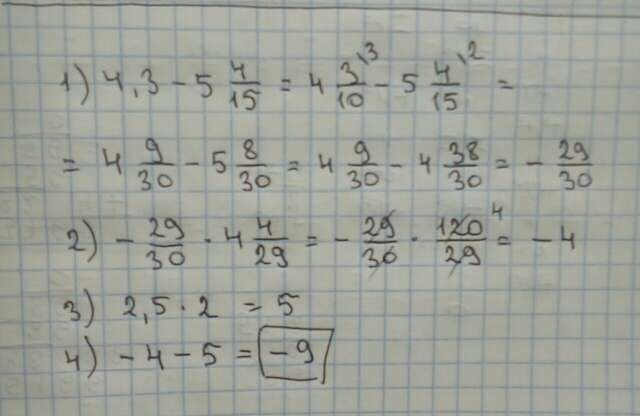 1) 4,3 - 5 4/15 = 4 3/10 \3 - 5 4/15 \2 =
= 4 9/30 - 5 8/30 = 4 9/30 - 4 38/30 = - 29/30
2) - 29/30 · 4 4/29 = - 29/30 · 120/29 4 = - 4
3) 2,5 · 2 = 5
4) - 4 - 5 = - 9